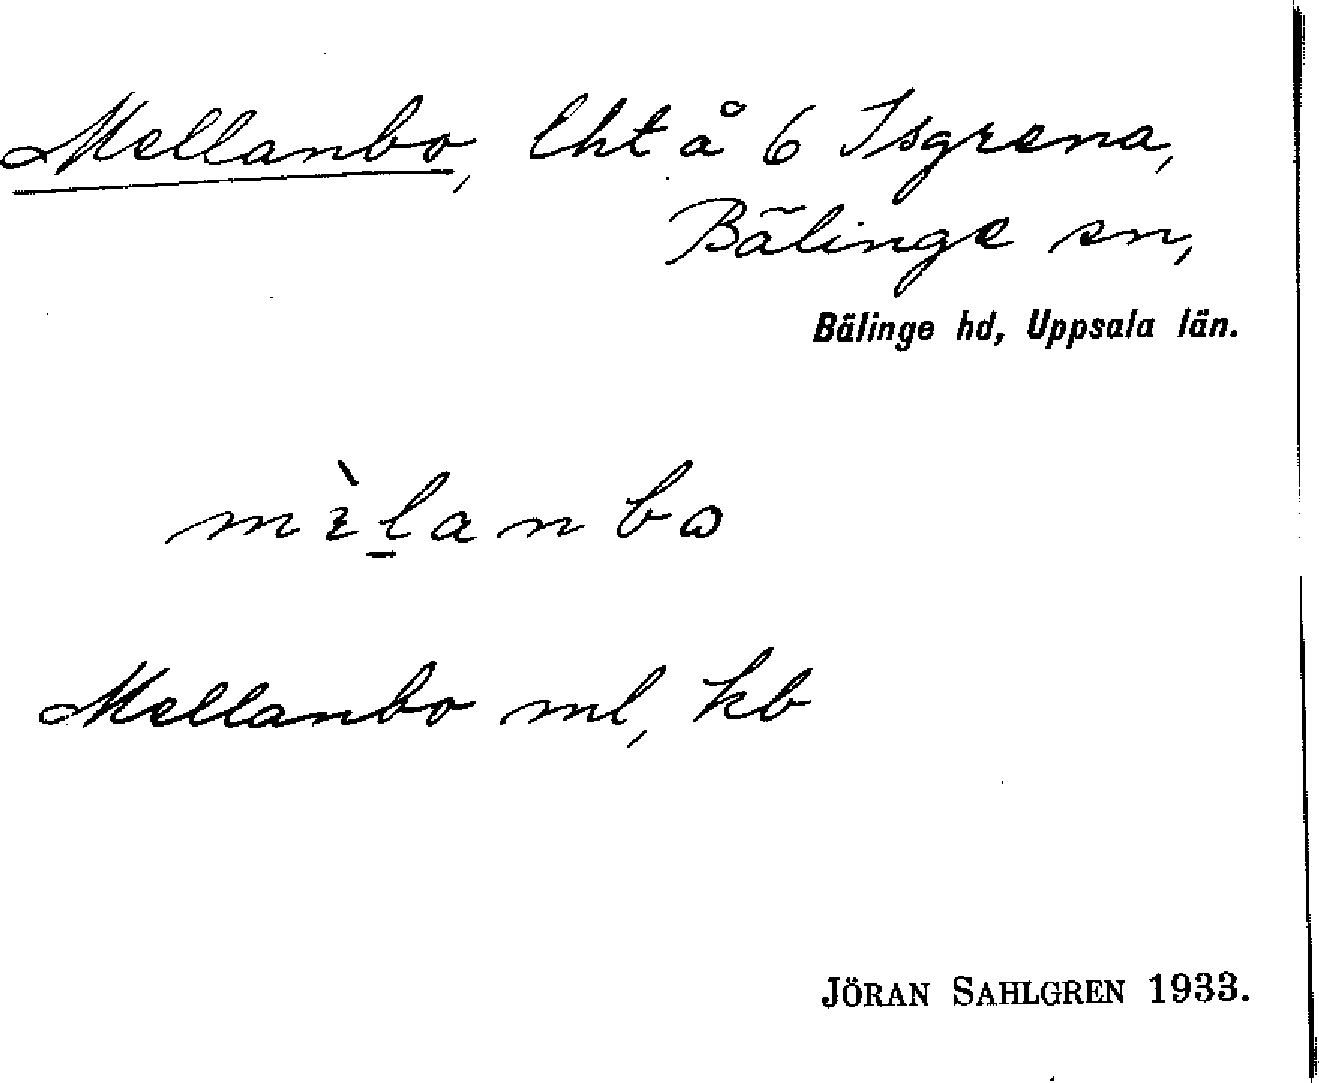 Mellanbo, lht å 6 Isgrena,
Bälinge sn,
Bälinge hd, Uppsala län.
mὲl̲anbω
Mellanbo ml, kb
JÖRAN SAHLGREN 1933.